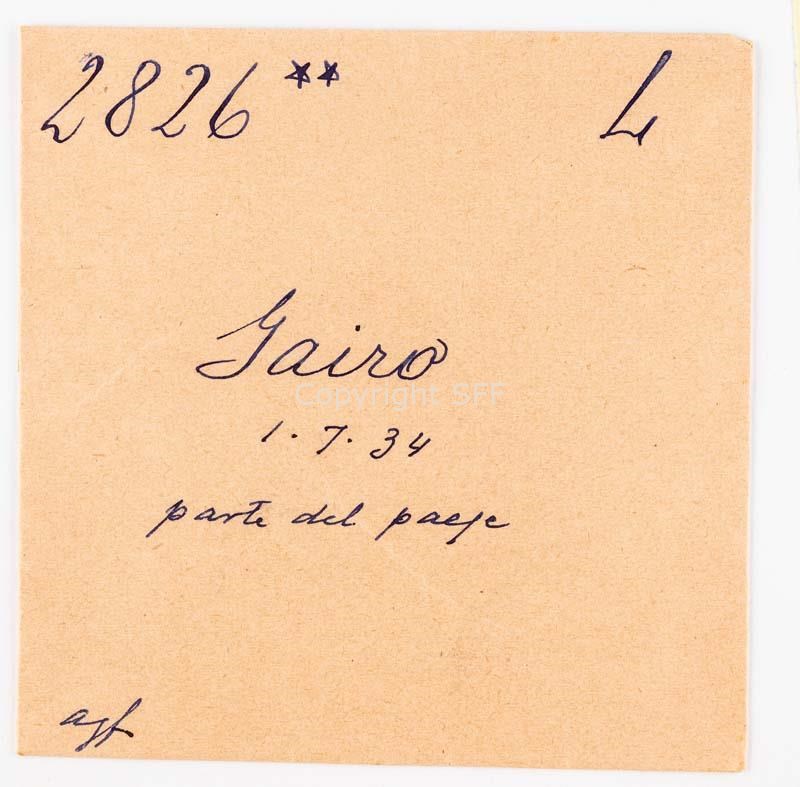 2826 ** L
Gairo
Copyright SFF
1.7.34
parte del paese
agf